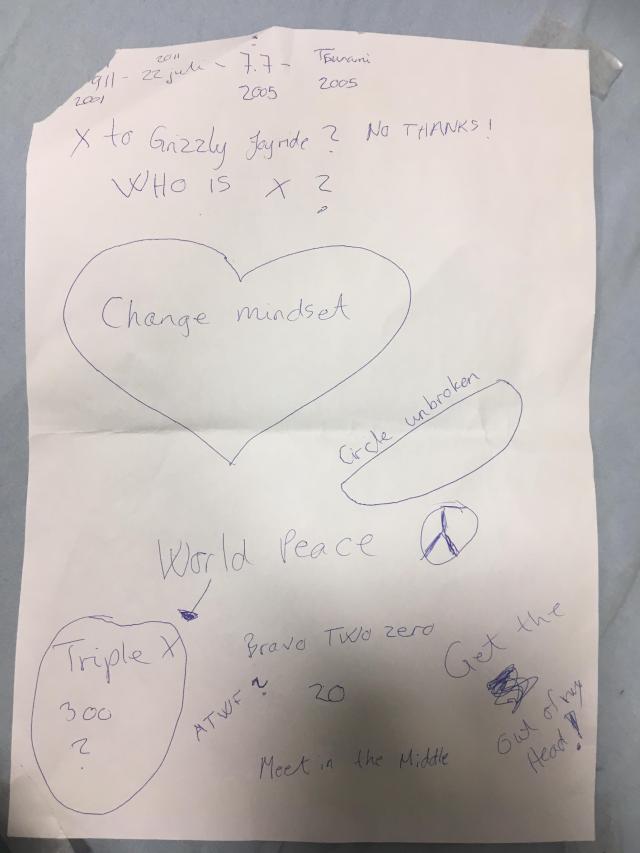 2011
911 - 22 juli - 7.7 - Tsunami
2001 2005 2005
X to Grizzly Joyride ? NO THANKS!
WHO IS X ?
Change mindset
Circle unbroken
World Peace
Triple X
300
?
Bravo Two zero
ATWF ?
20
Meet in the Middle
Get the
Out of my
Head!